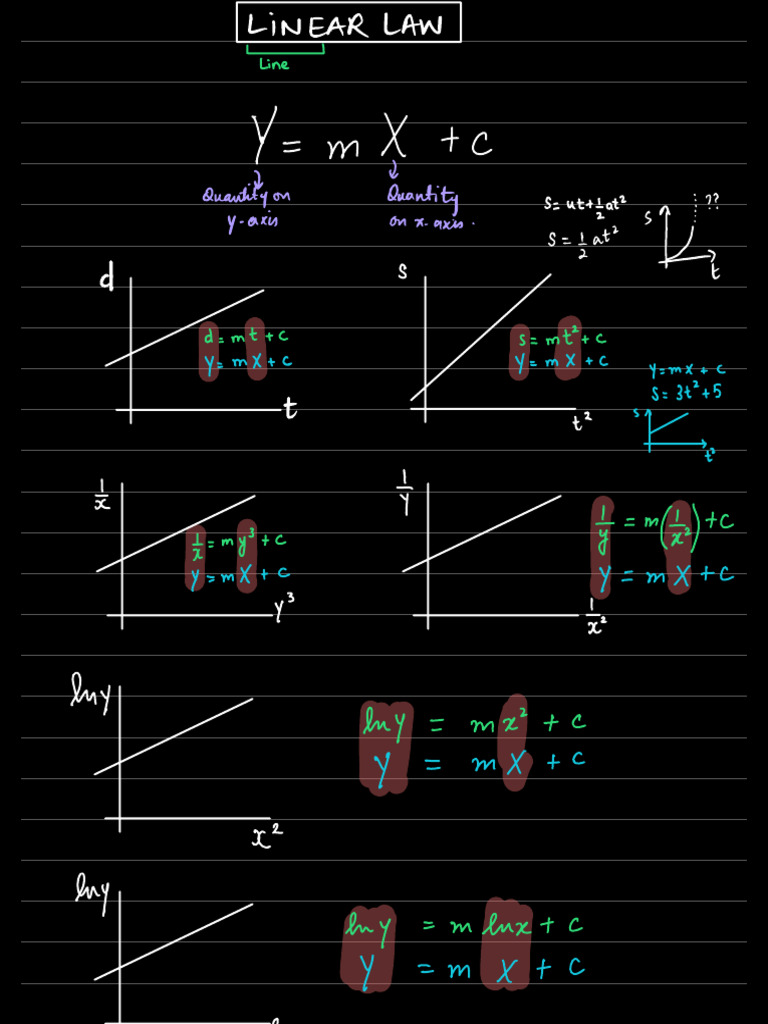 LINEAR LAW
Line
Y = m X + c
Quantity on
y-axis
Quantity
on x-axis.
S = ut + 1/2 at²
S = 1/2 at²
S
??
t
d
d = mt + c
Y = mX + c
t
s
s = mt² + c
Y = mX + c
t²
Y = mX + c
S = 3t² + 5
S
t²
1/x
1/x = my³ + c
Y = mX + c
y³
1/y
1/y = m(1/x²) + c
Y = mX + c
1/x²
ln y
ln y = m x² + c
Y = m X + c
x²
ln y
ln y = m ln x + c
Y = m X + c